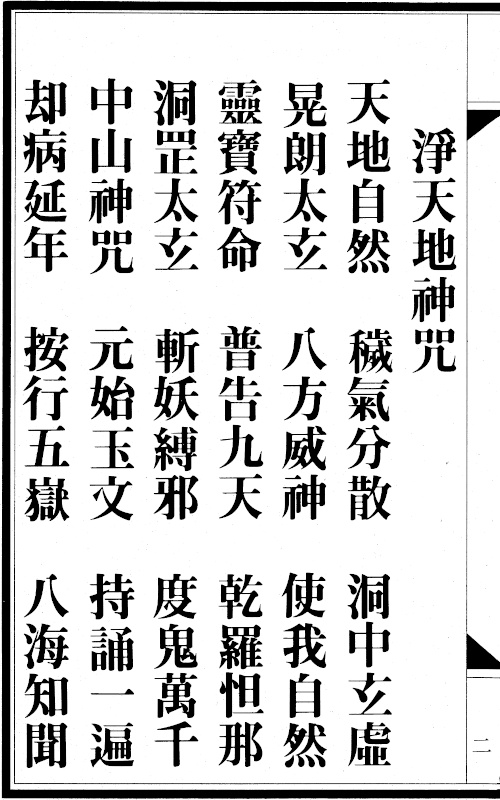 淨天地神咒
天地自然 穢氣分散 洞中玄虛
晃朗太玄 八方威神 使我自然
靈寶符命 普告九天 乾羅怛那
洞罡太玄 斬妖縛邪 度鬼萬千
中山神咒 元始玉文 持誦一遍
却病延年 按行五嶽 八海知聞
二